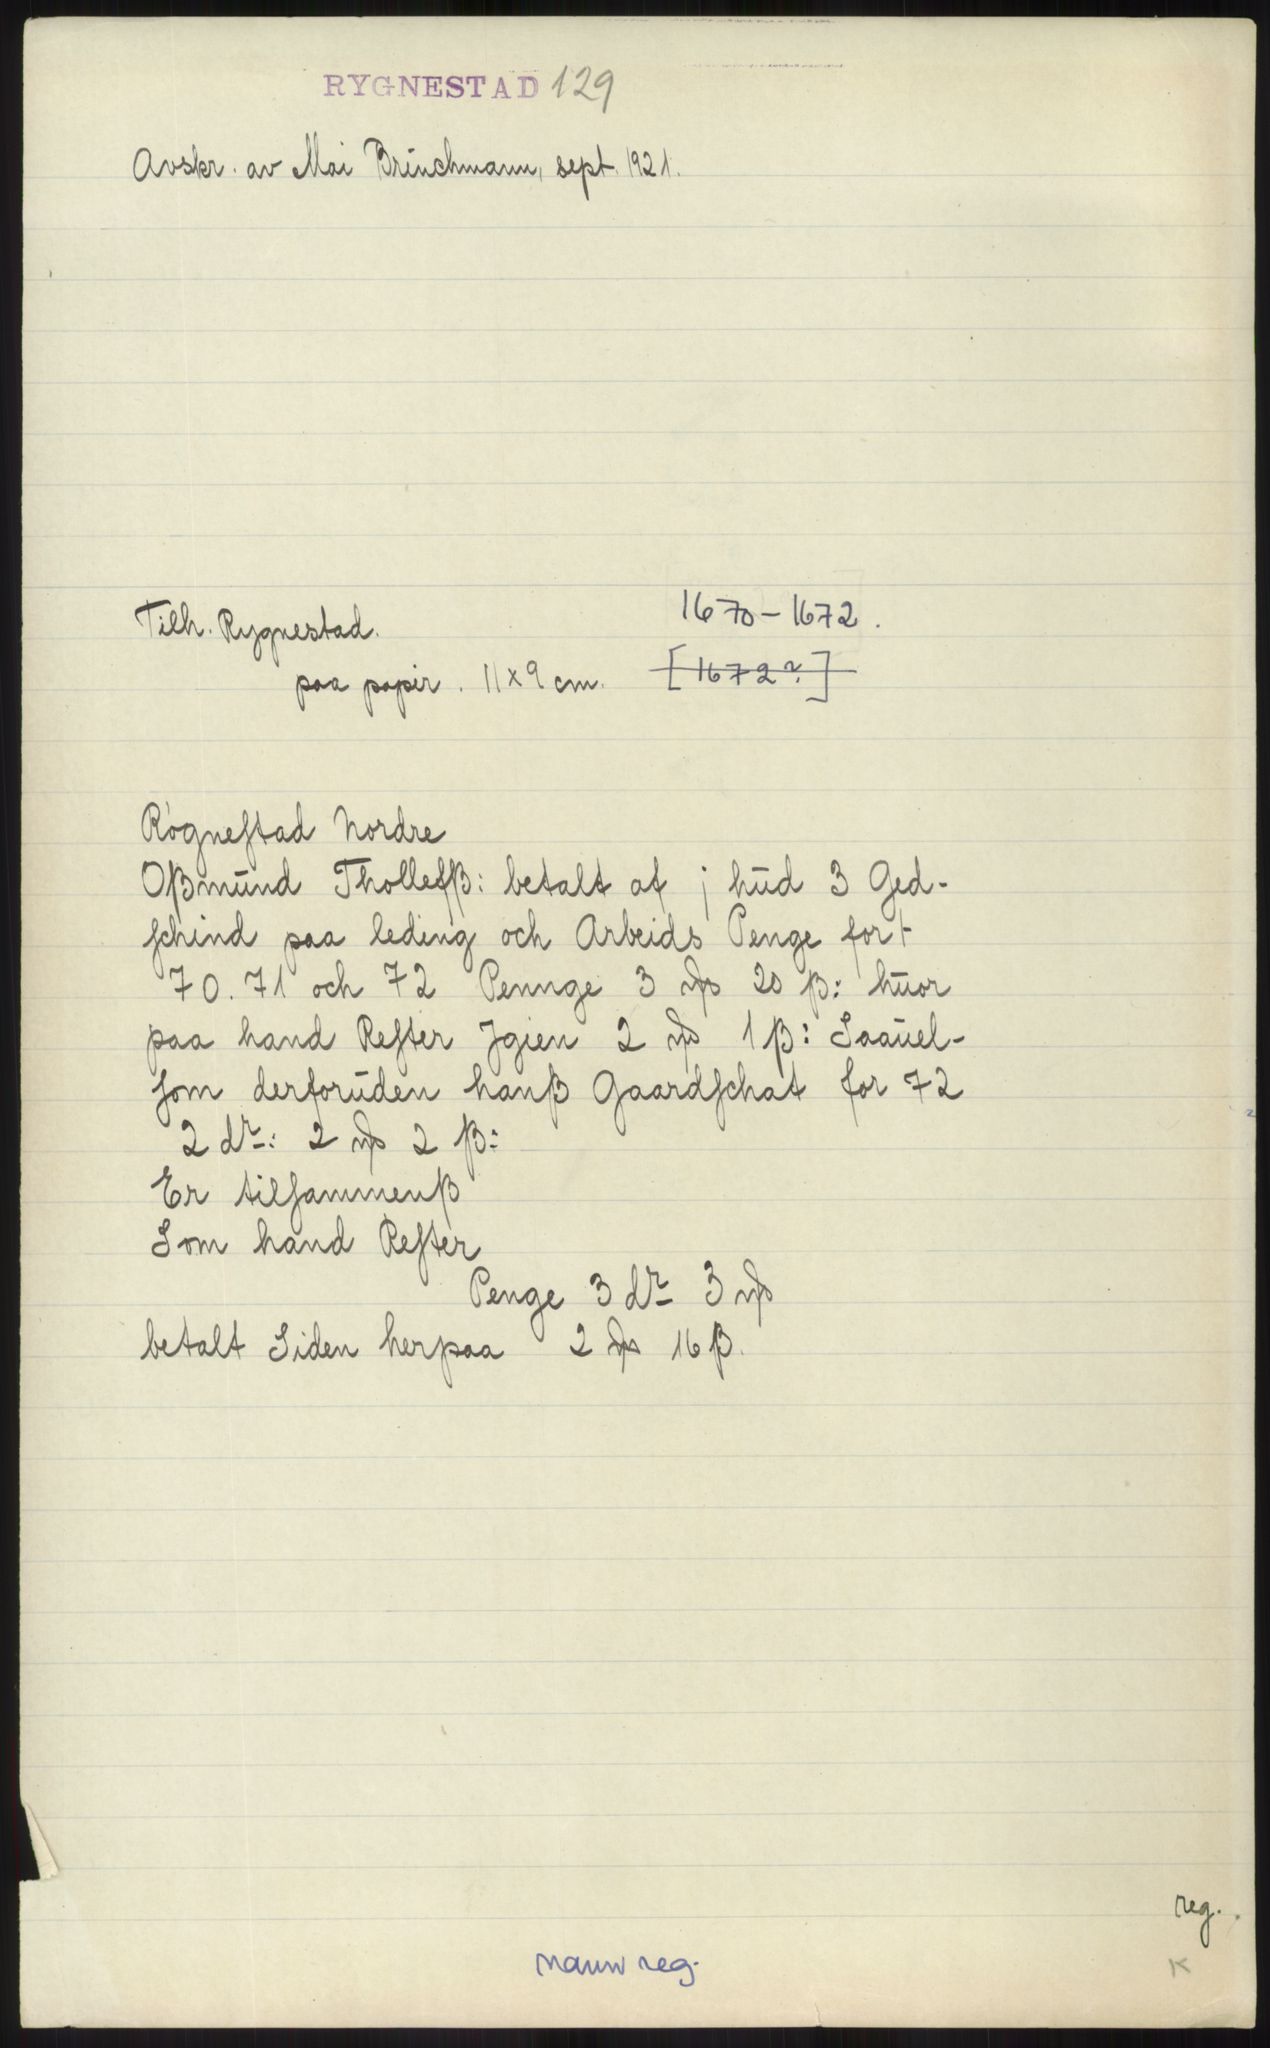 RYGNESTAD 129
Avskr. av Mai Brinchmann, sept. 1921.
Tilh. Rygnestad.
1670-1672.
paa papir. 11x9 cm.
[1672?]
Rögneſtad Nordre
Oßmŭnd Thollefß: betalt af j hŭd 3 Ged-
ſchind paa leding och Arbeids Penge for
70. 71 och 72 Pennge 3 20 β: hŭor
paa hand Reſter Jgien 2 1 β: Saaŭel-
ſom derforŭden hanß Gaardſchat for 72
2 dr: 2 2 β:
Er tilſammenß
Som hand Reſter
Penge 3 dr 3
betalt Siden herpaa 2 16 β.
reg.
navn reg.
K